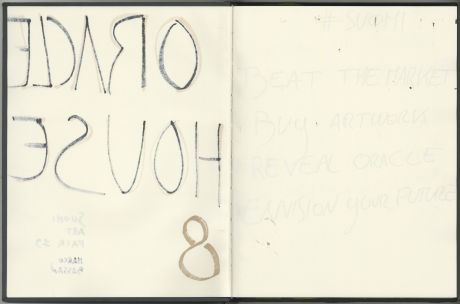 ORACLE
HOUSE
SUOMI
ART
FAIR
8
# SUOMI
BEAT THE MARKET
BUY ARTWORK
REVEAL ORACLE
ENVISION YOUR FUTURE